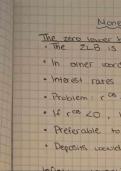 Mone
The zero lower b
• The ZLB is
• In other word
• Interest rates
• Problem: r^CB
• If r^CB < 0,
• Preferable to
• Deposits would